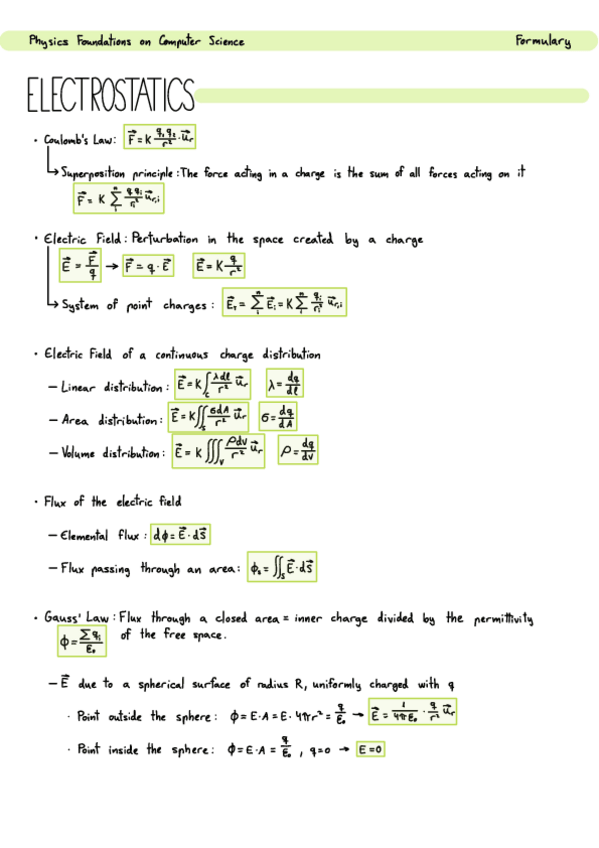 Physics Foundations on Computer Science Formulary
ELECTROSTATICS
· Coulomb's Law: F⃗ = K q₁q₂/r² · u⃗r
↳ Superposition principle: The force acting in a charge is the sum of all forces acting on it
F⃗ = K Σᵢⁿ q qᵢ/rᵢ² u⃗r,i
· Electric Field: Perturbation in the space created by a charge
E⃗ = F⃗/q → F⃗ = q · E⃗ E⃗ = K q/r²
↳ System of point charges: E⃗ₜ = Σᵢⁿ E⃗ᵢ = K Σᵢⁿ qᵢ/rᵢ² u⃗r,i
· Electric Field of a continuous charge distribution
– Linear distribution: E⃗ = K ∫c λdl/r² u⃗r λ = dq/dl
– Area distribution: E⃗ = K ∬s σdA/r² u⃗r σ = dq/dA
– Volume distribution: E⃗ = K ∭v ρdv/r² u⃗r ρ = dq/dv
· Flux of the electric field
– Elemental flux: dϕ = E⃗ · dS⃗
– Flux passing through an area: ϕs = ∬s E⃗ · dS⃗
· Gauss' Law: Flux through a closed area = inner charge divided by the permittivity
ϕ = Σqᵢ/ε₀ of the free space.
– E⃗ due to a spherical surface of radius R, uniformly charged with q
· Point outside the sphere: ϕ = E·A = E·4πr² = q/ε₀ → E⃗ = 1/4πε₀ · q/r² u⃗r
· Point inside the sphere: ϕ = E·A = q/ε₀ , q=0 → E=0